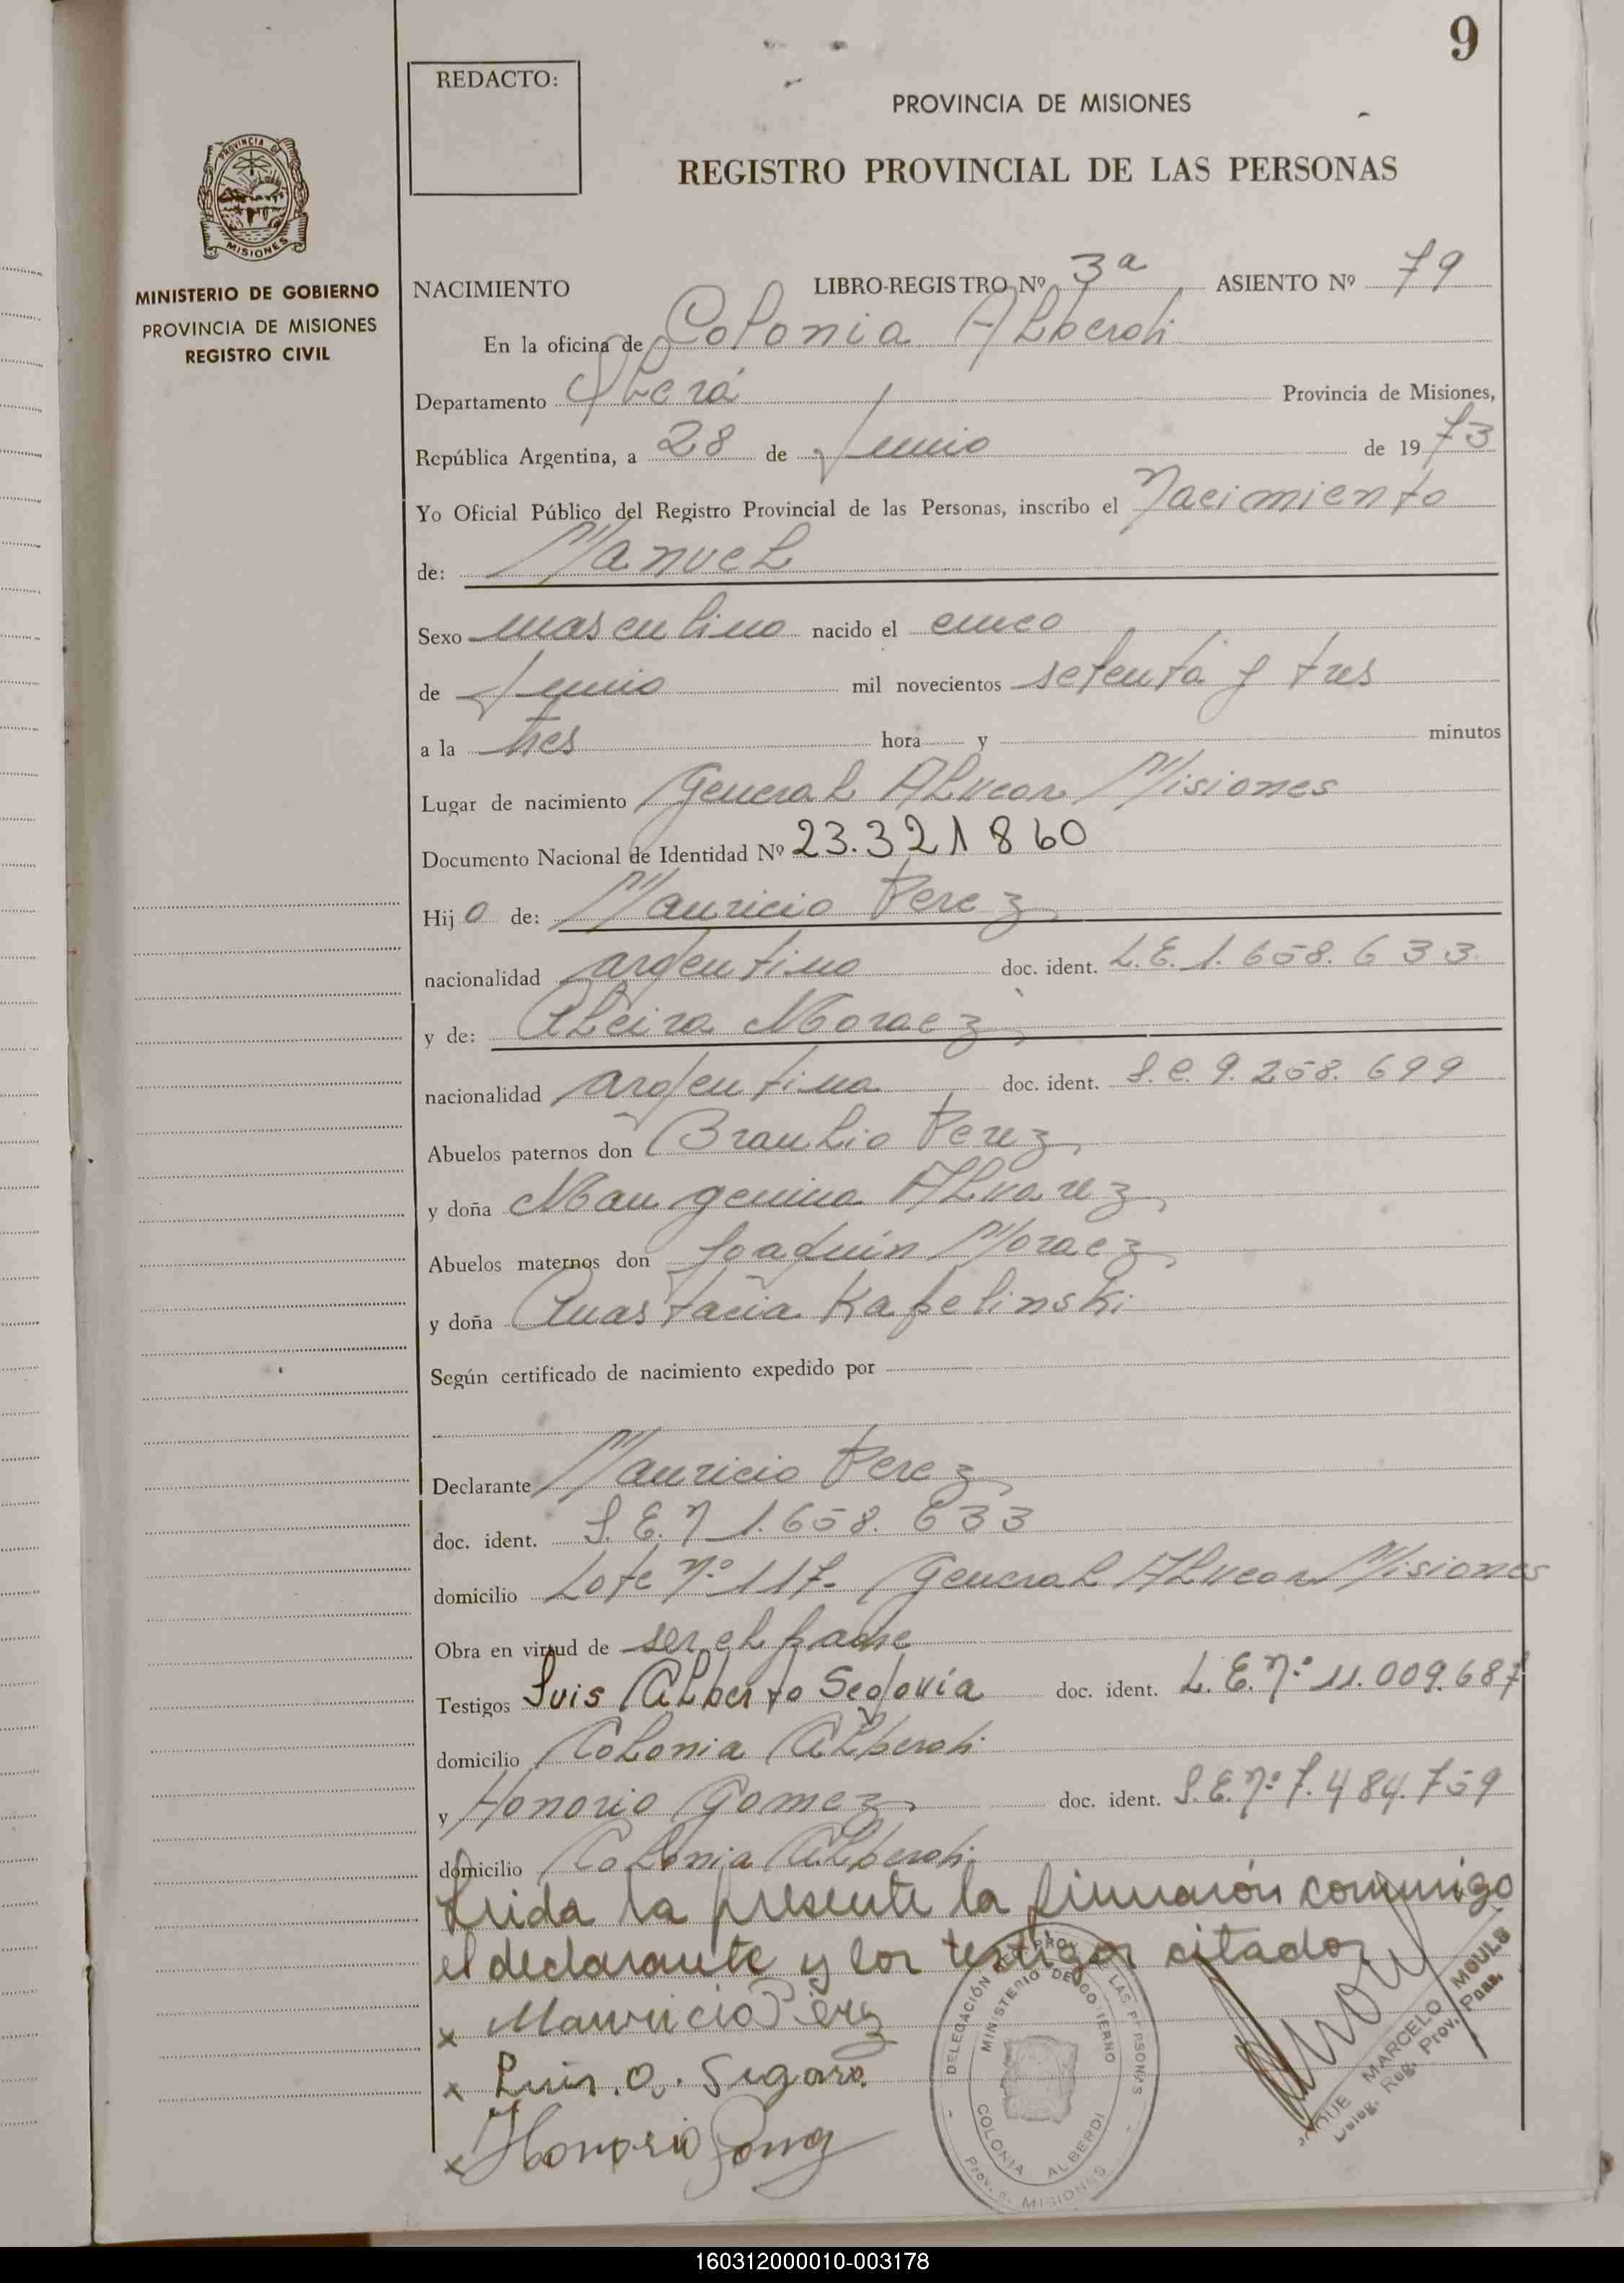 9
REDACTO:
PROVINCIA DE MISIONES
REGISTRO PROVINCIAL DE LAS PERSONAS
PROVINCIA DE
MISIONES
MINISTERIO DE GOBIERNO
PROVINCIA DE MISIONES
REGISTRO CIVIL
NACIMIENTO LIBRO-REGISTRO Nº 3ª ASIENTO Nº 79
En la oficina de Colonia Alberdi
Departamento Oberá Provincia de Misiones,
República Argentina, a 28 de Junio de 1973
Yo Oficial Público del Registro Provincial de las Personas, inscribo el Nacimiento
de: Manuel
Sexo masculino nacido el cinco
de Junio mil novecientos setenta y tres
a la tres hora y minutos
Lugar de nacimiento General Alvear Misiones
Documento Nacional de Identidad Nº 23.321860
Hijo de: Mauricio Perez
nacionalidad argentino doc. ident. L.E. 1.658.633.
y de: Aleira Moraez
nacionalidad argentina doc. ident. 9.258.699
Abuelos paternos don Braulio Perez
y doña Alvarez
Abuelos maternos don Joaquín Moraez
y doña Anastacia Kapelinski
Según certificado de nacimiento expedido por
Declarante Mauricio Perez
doc. ident. L.E. N 1.658.633
domicilio Lote Nº 117- General Alvear Misiones
Obra en virtud de ser el padre
Testigos Luis Alberto Segovia doc. ident. L.E. Nº 11.009.687
domicilio Colonia Alberdi
y Honorio Gomez doc. ident. L.E. Nº 7.484.759
domicilio Colonia Alberdi
Leida la presente la firmarón conmigo
el declarante y los testigos citados
x Mauricio Perez
x Luis. a.
x Honorio
DELEGACIÓN PROV. LAS PERSONAS
MINISTERIO DE GOBIERNO
COLONIA ALBERDI
Prov. de MISIONES
MARCELO MOULS
Deleg. Reg. Prov. Pers.
160312000010-003178